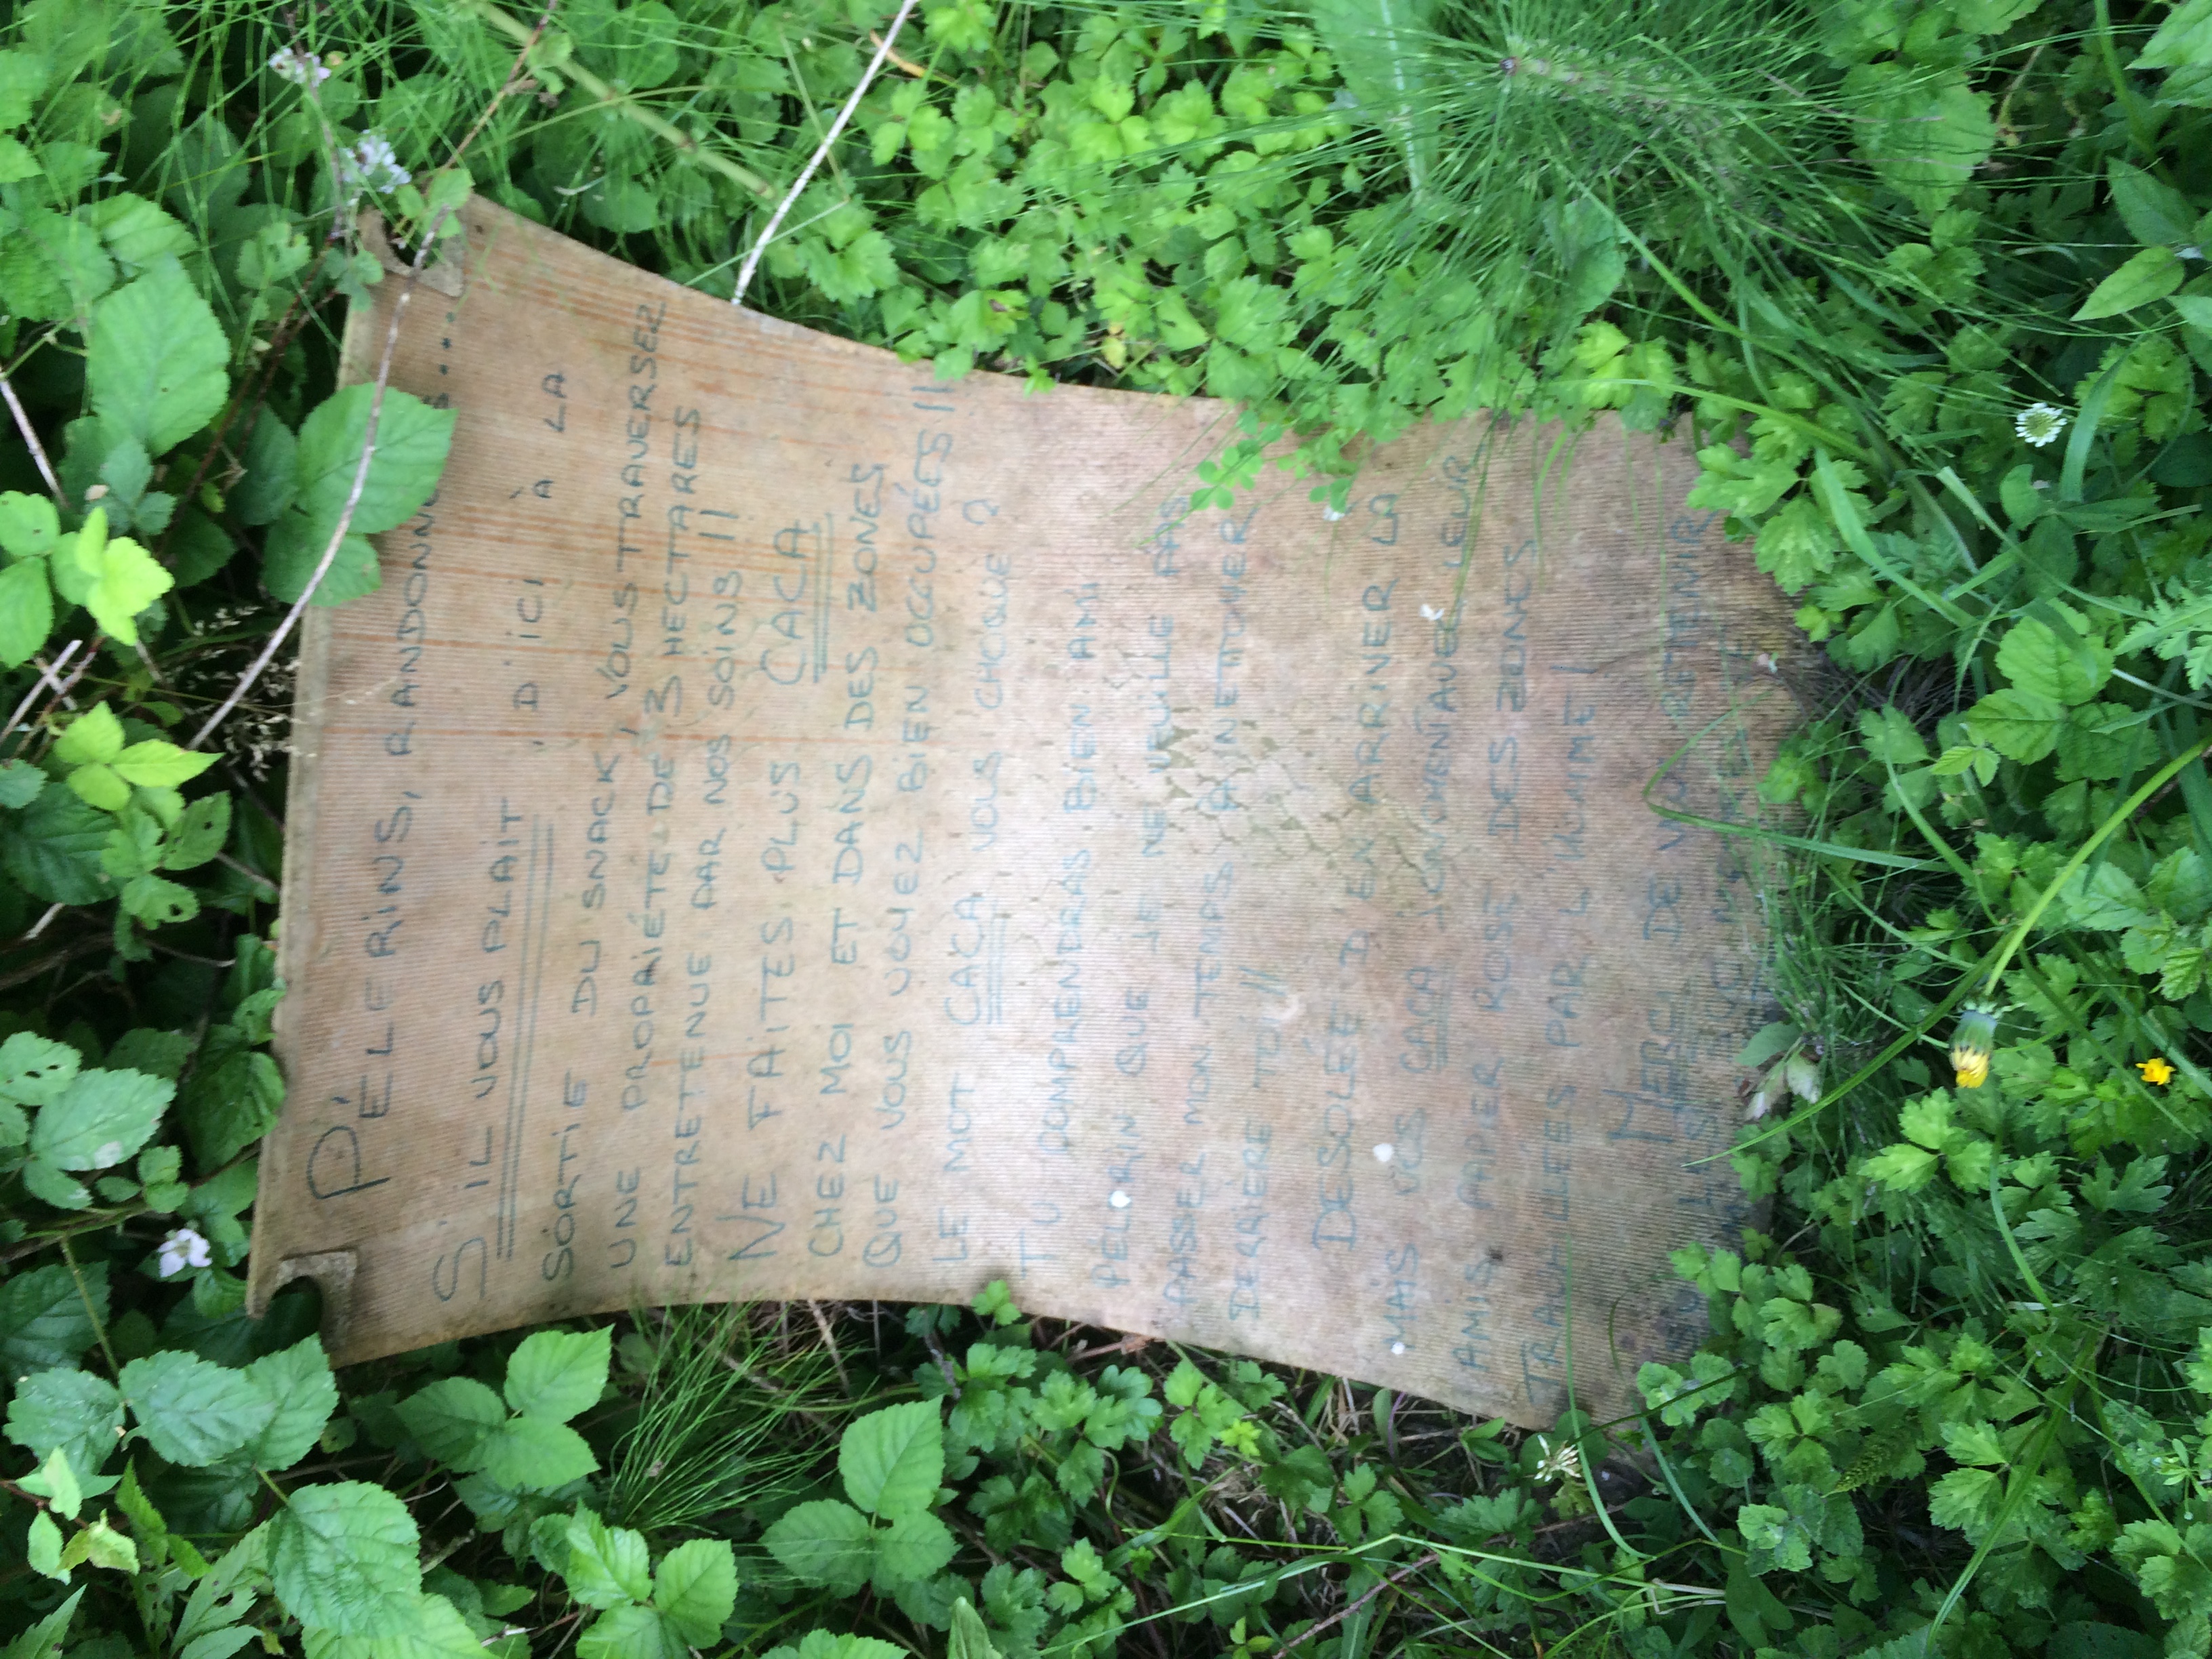 PÉLERINS, RANDONN
S'IL VOUS PLAIT, D'ICI À LA
SORTIE DU SNACK, VOUS TRAVERSEZ
UNE PROPRIÉTÉ DE 3 HECTARES
ENTRETENUE PAR NOS SOINS !!
NE FAITES PLUS CACA
CHEZ MOI ET DANS DES ZONES
QUE VOUS VOYEZ BIEN OCCUPÉES !!
LE MOT CACA VOUS CHOQUE ?
TU COMPRENDRAS BIEN AMI
PELERIN QUE JE NE VEUILLE PAS
PASSER MON TEMPS À NETTOYER
DERRIÈRE TOI !!
DESOLÉE D'EN ARRIVER LÀ
MAIS VOS CACA AVEC LEUR
AMIS PAPIER ROSE DES ZONES
TRAVAILLÉES PAR L'HOMME !
MERCI DE VOUS RETENIR